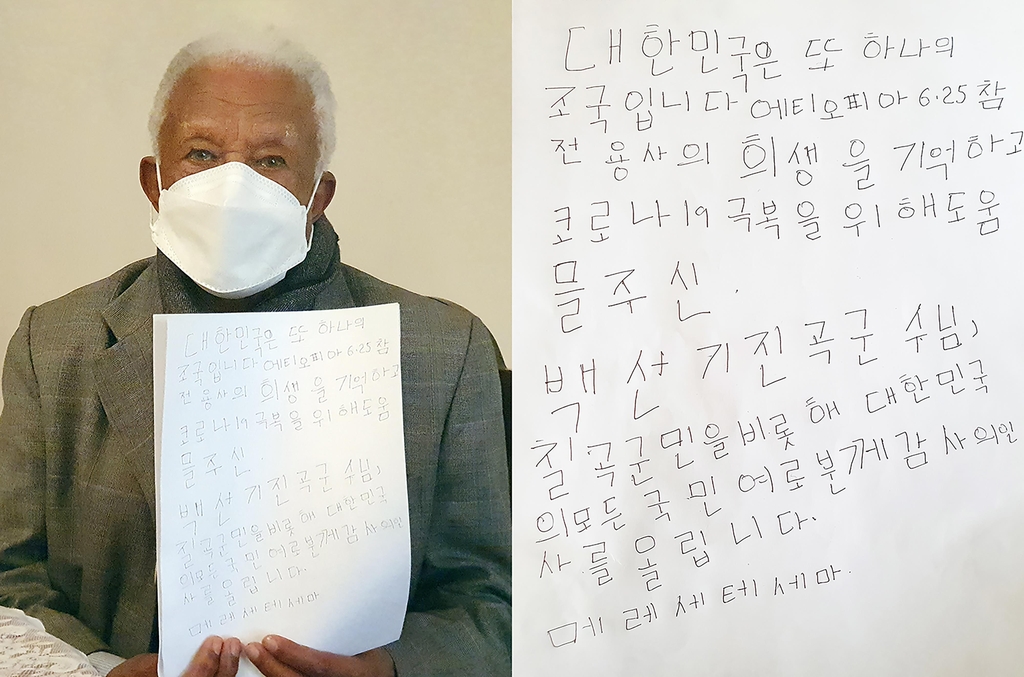 대한민국은 또 하나의
조국입니다 에티오피아 6·25 참
전 용사의 희생을 기억하고
코로나19 극복을 위해도움
믈주신
백산기진곡군 수님,
칠곡군민을비롯해 대한민국
의모든국민 여로분께감사의인
사를올립니다.
메레세테세마
대한민국은 또 하나의
조국입니다 에티오피아 6·25 참
전 용사의 희생을 기억하고
코로나19 극복을 위해도움
믈주신.
백산기진곡군 수님,
칠곡군민을비롯해 대한민국
의모든국민 여로분께감사의인
사를올립니다.
메레세테세마.